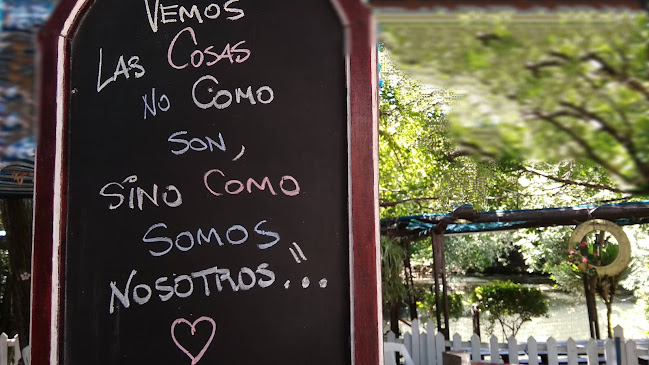 VEMOS
LAS COSAS
NO COMO
SON,
SINO COMO
SOMOS
NOSOTROS"...